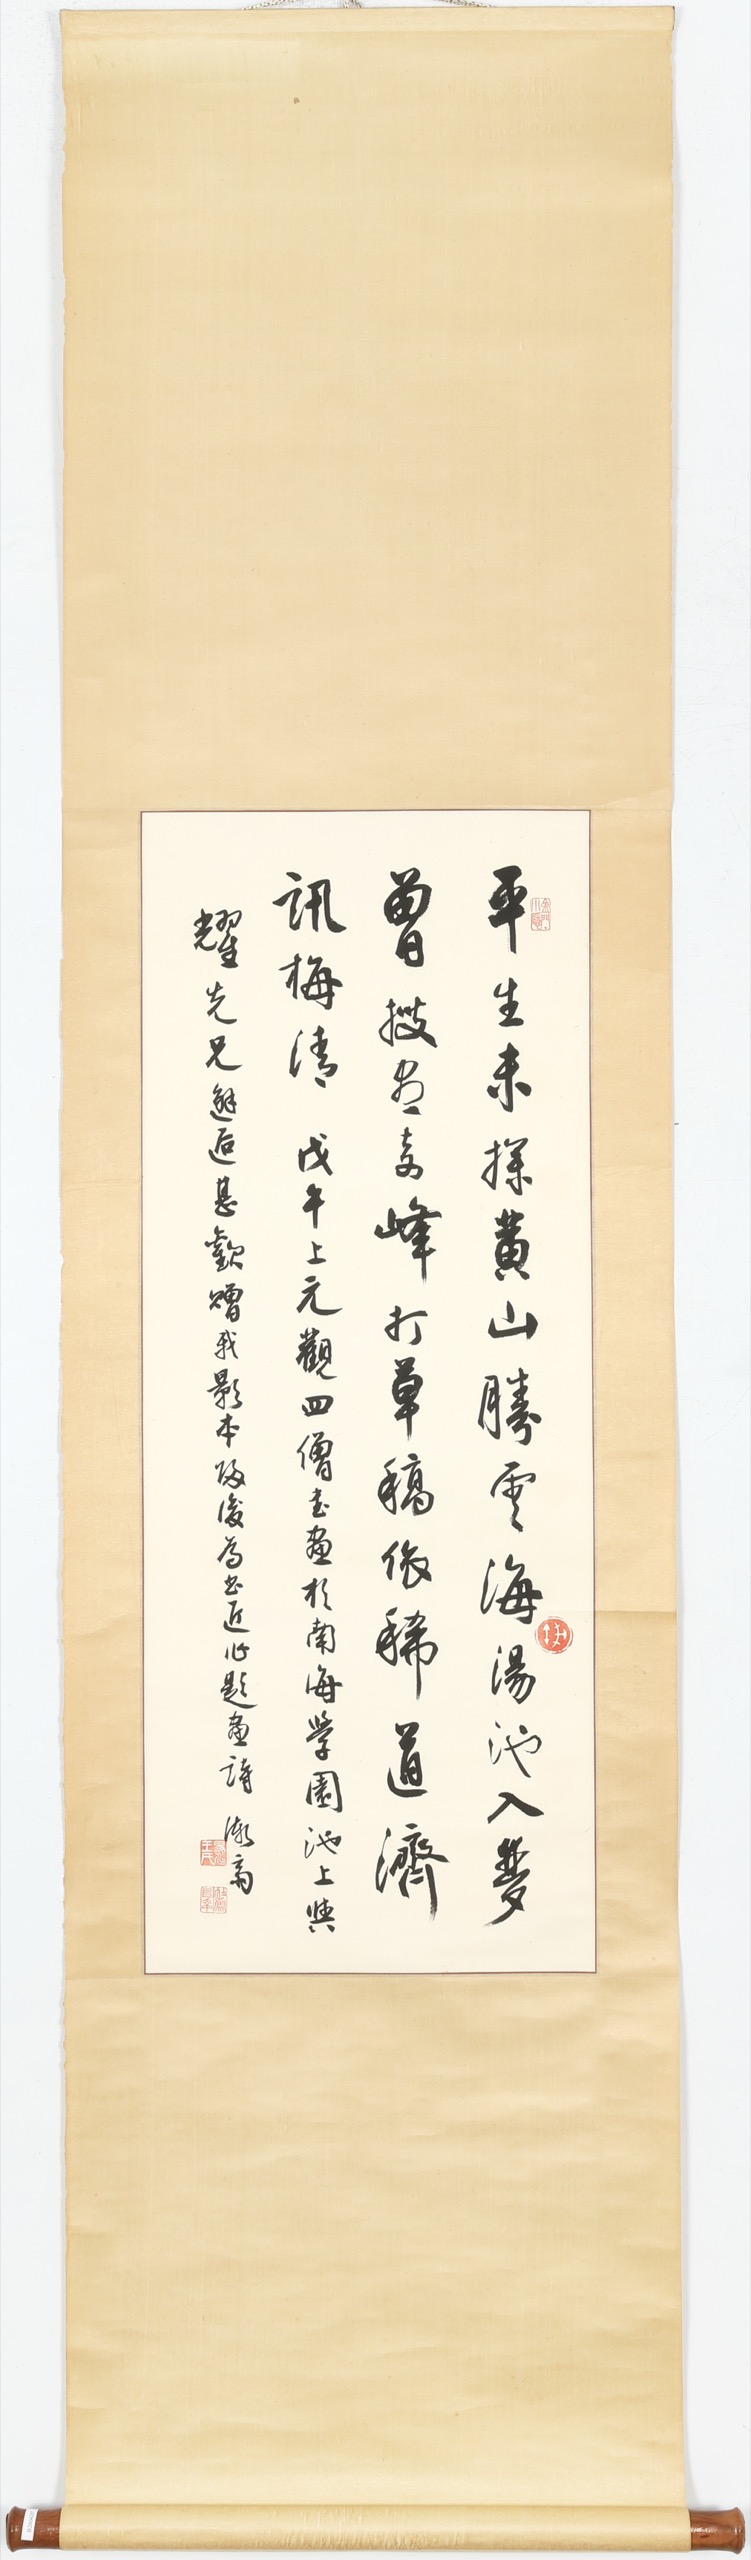 平生未探黃山勝雲海湯池入夢
曾搜盡奇峰打草稿依稀道濟
訊梅清 戊午上元觀四僧書畫於南海學園池上與
耀先兄邂逅甚歡贈我影本歸後為書近作題畫詩